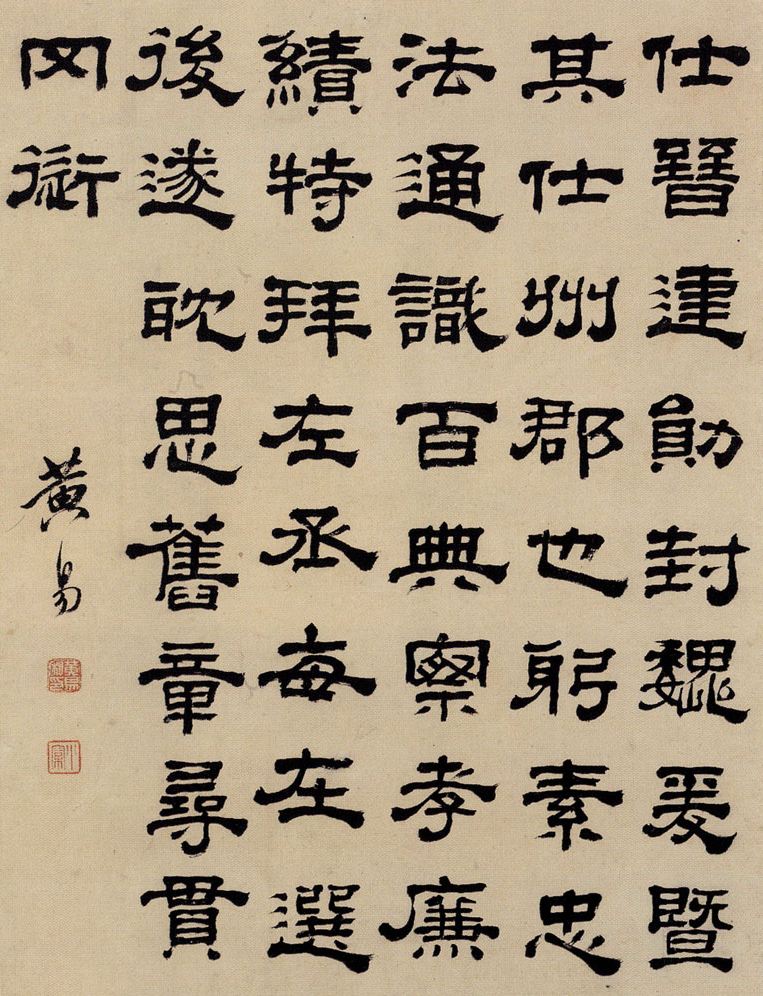 仕晉建勛封魏爰暨
其仕州郡也躬素忠
法通識百典察孝廉
績特拜左丞每在選
後遂耽思舊章尋貫
黃易
小松